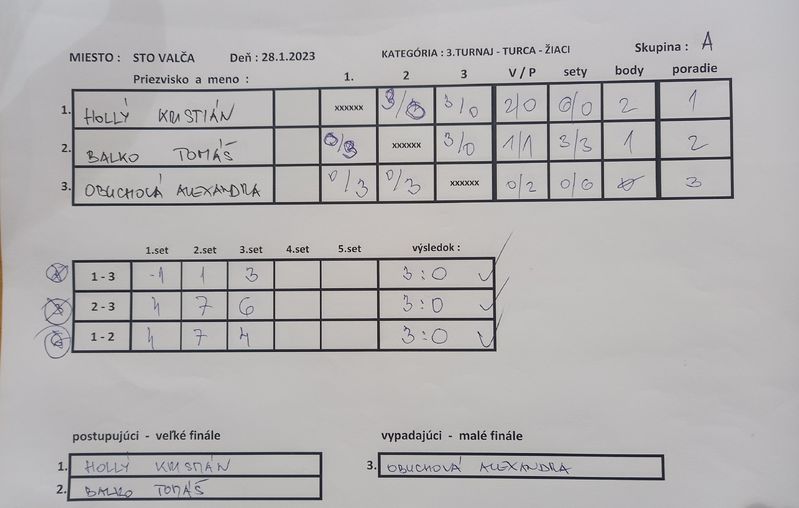 MIESTO : STO VALČA Deň : 28.1.2023 KATEGÓRIA : 3.TURNAJ - TURCA - ŽIACI Skupina : A
Priezvisko a meno : 1. 2 3 V / P sety body poradie
1. HOLLÝ KRISTIÁN xxxxxx 3/0 3/0 2/0 6/0 2 1
2. BALKO TOMÁŠ 0/3 xxxxxx 3/0 1/1 3/3 1 2
3. OBUCHOVÁ ALEXANDRA 0/3 0/3 xxxxxx 0/2 0/6 0 3
1.set 2.set 3.set 4.set 5.set výsledok :
1 - 3 -1 1 3 3:0
2 - 3 4 7 6 3:0
1 - 2 4 7 4 3:0
postupujúci - veľké finále vypadajúci - malé finále
1. HOLLÝ KRISTIÁN 3. OBUCHOVÁ ALEXANDRA
2. BALKO TOMÁŠ